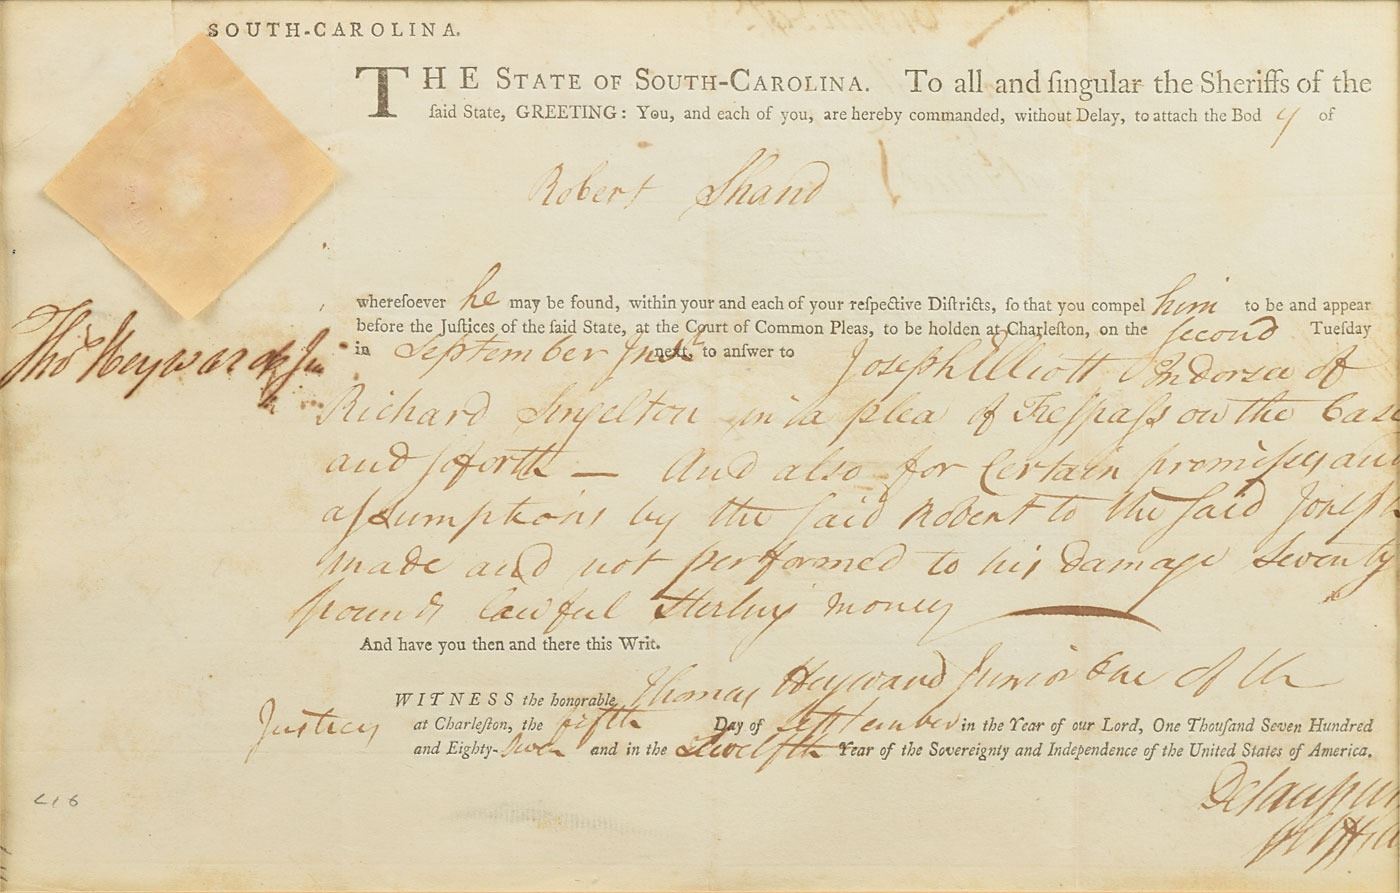 SOUTH-CAROLINA.
THE STATE OF SOUTH-CAROLINA. To all and ſingular the Sheriffs of the
ſaid State, GREETING: You, and each of you, are hereby commanded, without Delay, to attach the Bod y of
Robert Shand
whereſoever he may be found, within your and each of your reſpective Diſtricts, ſo that you compel him to be and appear
before the Juſtices of the ſaid State, at the Court of Common Pleas, to be holden at Charleſton, on the second Tuesday
in September Inst next, to anſwer to Joseph Elliott Indorsee of
Thos Heyward Jun
Richard Singelton in a plea of Treſpaſs on the Case
and ſo forth — And also for Certain promiſes and
aſsumptions by the ſaid Robert to the ſaid Joseph
made and not performed to his damage Seventy
pounds lawful Sterling money
And have you then and there this Writ.
WITNESS the honorable Thomas Heyward Junior One of the
Justices at Charleſton, the fifth Day of September in the Year of our Lord, One Thouſand Seven Hundred
and Eighty-Seven and in the Twelfth Year of the Sovereignty and Independence of the United States of America.